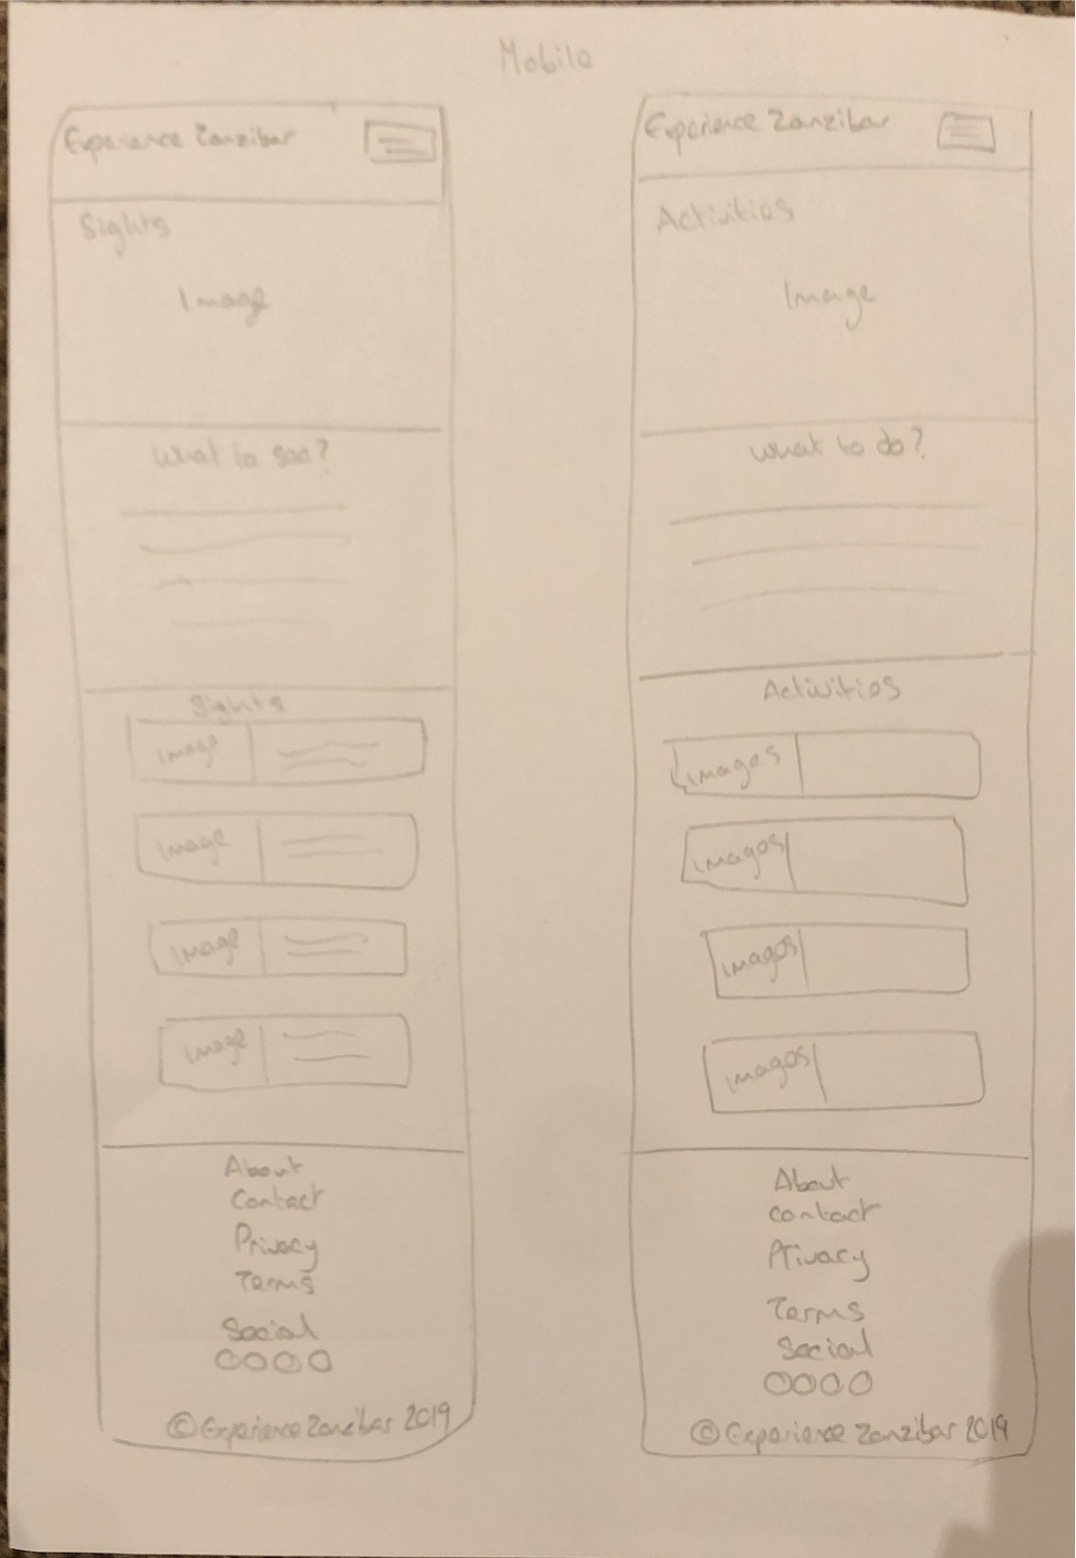 Mobile
Experience Zanzibar
Sights
Image
What to see?
Sights
Image
Image
Image
Image
About
Contact
Privacy
Terms
Social
© Experience Zanzibar 2019
Experience Zanzibar
Activities
Image
What to do?
Activities
Images
Images
Images
Images
About
Contact
Privacy
Terms
Social
© Experience Zanzibar 2019